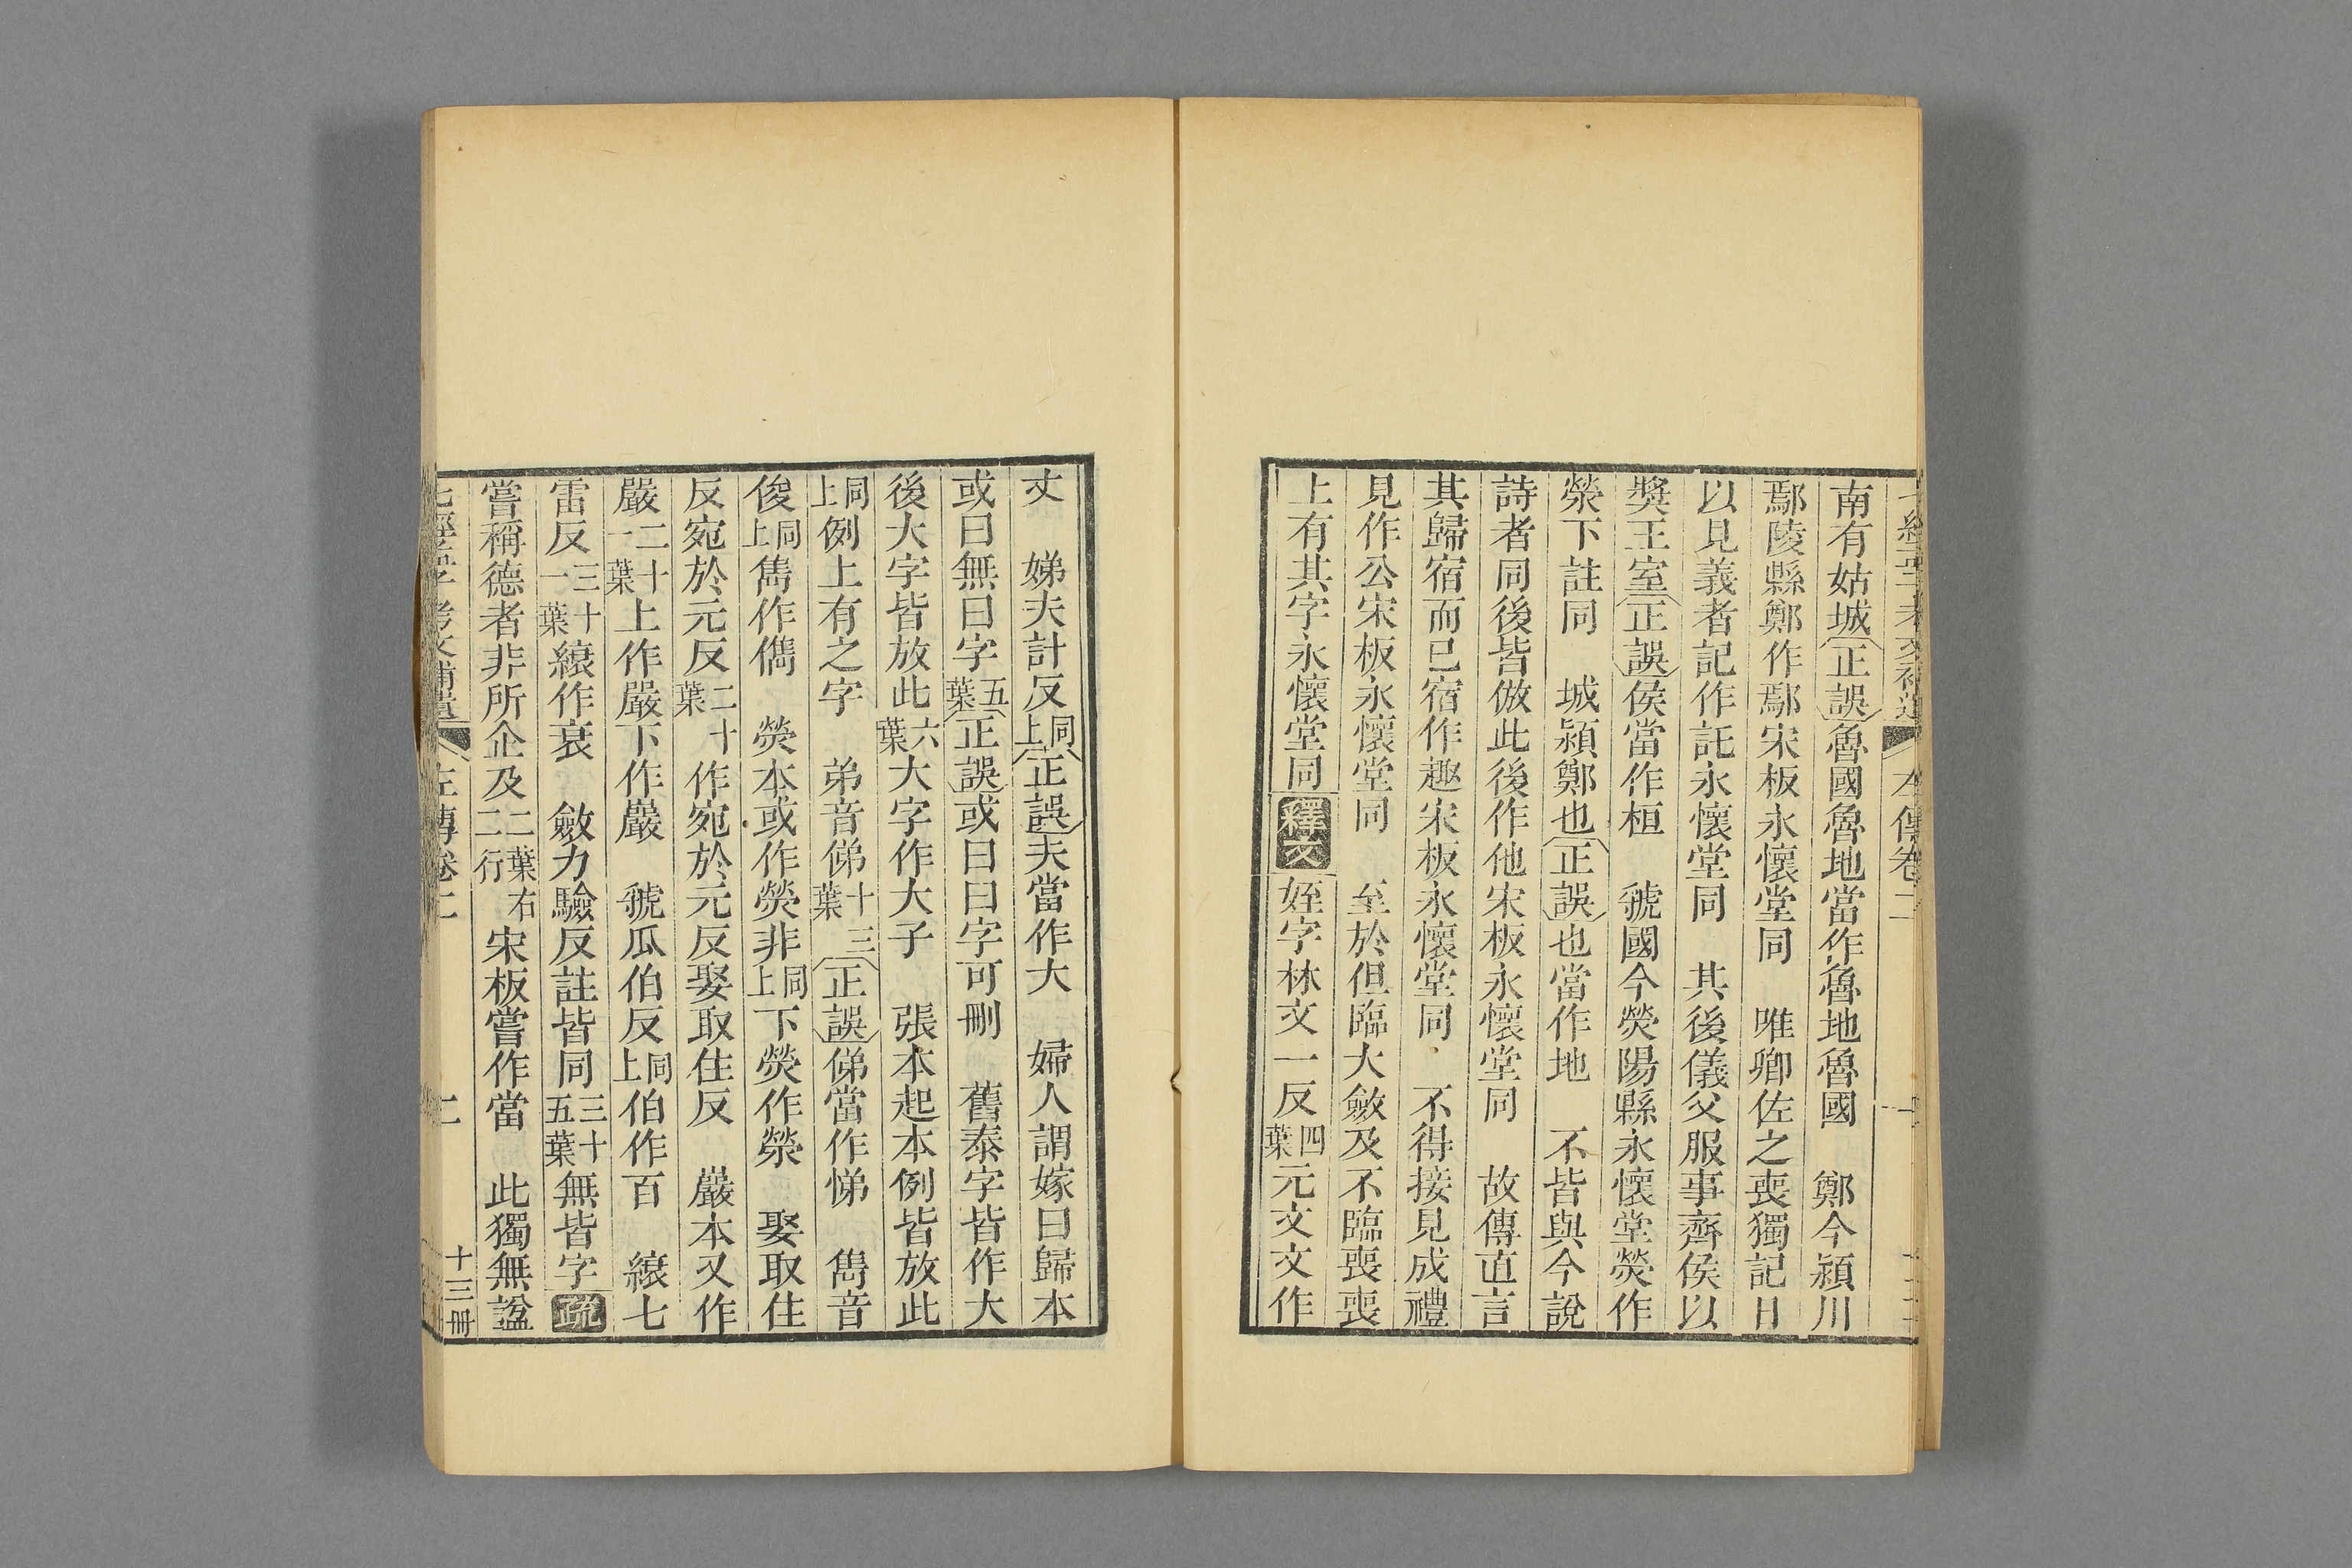 七經孟子考文補遺 左傳卷二
南有姑城正誤魯國魯地當作魯地魯國 鄭今潁川
鄢陵縣鄭作鄢宋板永懷堂同 唯卿佐之喪獨記日
以見義者記作託永懷堂同 其後儀父服事齊侯以
獎王室正誤侯當作桓 虢國今熒陽縣永懷堂熒作
滎下註同 城潁鄭也正誤也當作地 不皆與今說
詩者同後皆倣此後作他宋板永懷堂同 故傳直言
其歸宿而已宿作趣宋板永懷堂同 不得接見成禮
見作公宋板永懷堂同 至於但臨大斂及不臨喪喪
上有其字永懷堂同釋文姪字林文一反四葉元文文作
丈 娣夫計反同上正誤夫當作大 婦人謂嫁曰歸本
或曰無曰字五葉正誤或曰曰字可刪 舊泰字皆作大
後大字皆放此六葉大字作大子 張本起本例皆放此
同上例上有之字 弟音俤十三葉正誤俤當作悌 雋音
俊同上雋作儁 熒本或作熒非同上下熒作滎 娶取住
反宛於元反二十葉作宛於元反娶取住反 嚴本又作
嚴二十一葉上作嚴下作巖 虢瓜伯反同上伯作百 縗七
雷反三十一葉縗作衰 斂力驗反註皆同三十五葉無皆字疏
嘗稱德者非所企及二葉右二行宋板嘗作當 此獨無諡
七經孟子考文補遺 左傳卷二 二 十三冊